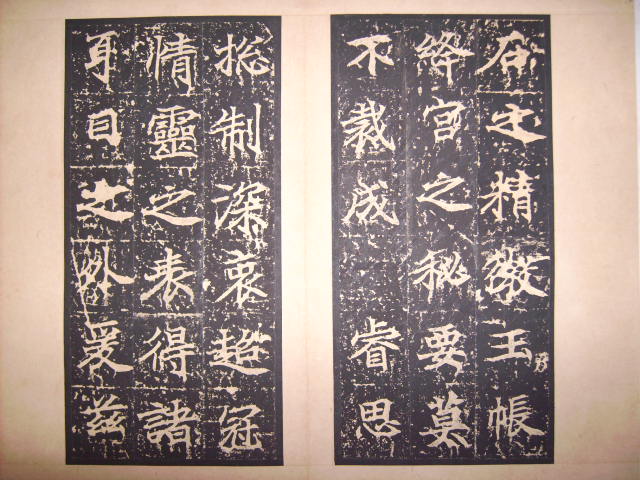 石之精微玉帳
絳宮之秘要莫
不裁成 睿思
揔制深衷超冠
情靈之表得諸
耳目之外爰茲